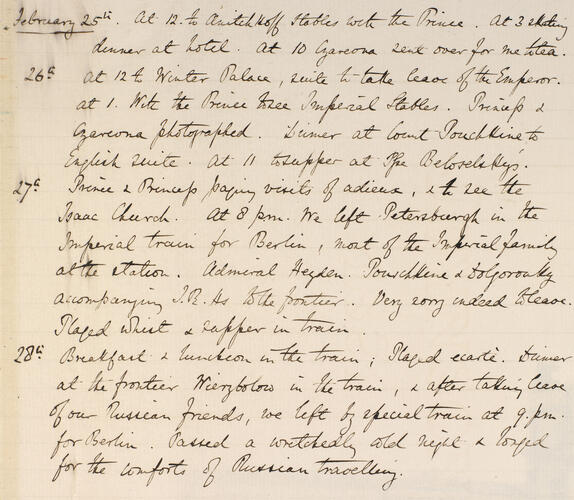 February 25th. At 12 to Anitchkoff Stables with the Prince. At 3 skating
dinner at hotel. At 10 Czarevna sent over for me to tea.
26th At 12 to Winter Palace, suite to take leave of the Emperor.
at 1. With the Prince to see Imperial Stables. Princess &
Czarevna photographed. Dinner at Count Pouchkine to
English suite. At 11 to supper at Pss Beloselsky's.
27th Prince & Princess paying visits of adieux, & to see the
Isaac Church. At 8 p.m. We left Petersburgh in the
Imperial train for Berlin, most of the Imperial family
at the station. Admiral Heyden. Pouschkine & Dolgorouky
accompanying T.R.Hs to the frontier. Very sorry indeed to leave.
Played whist & supper in train.
28th Breakfast & luncheon in the train; Played ecarté. Dinner
at the frontier Wierzbolow in the train, & after taking leave
of our Russian friends, we left by special train at 9. p.m.
for Berlin. Passed a wretchedly cold night & longed
for the comforts of Russian travelling.